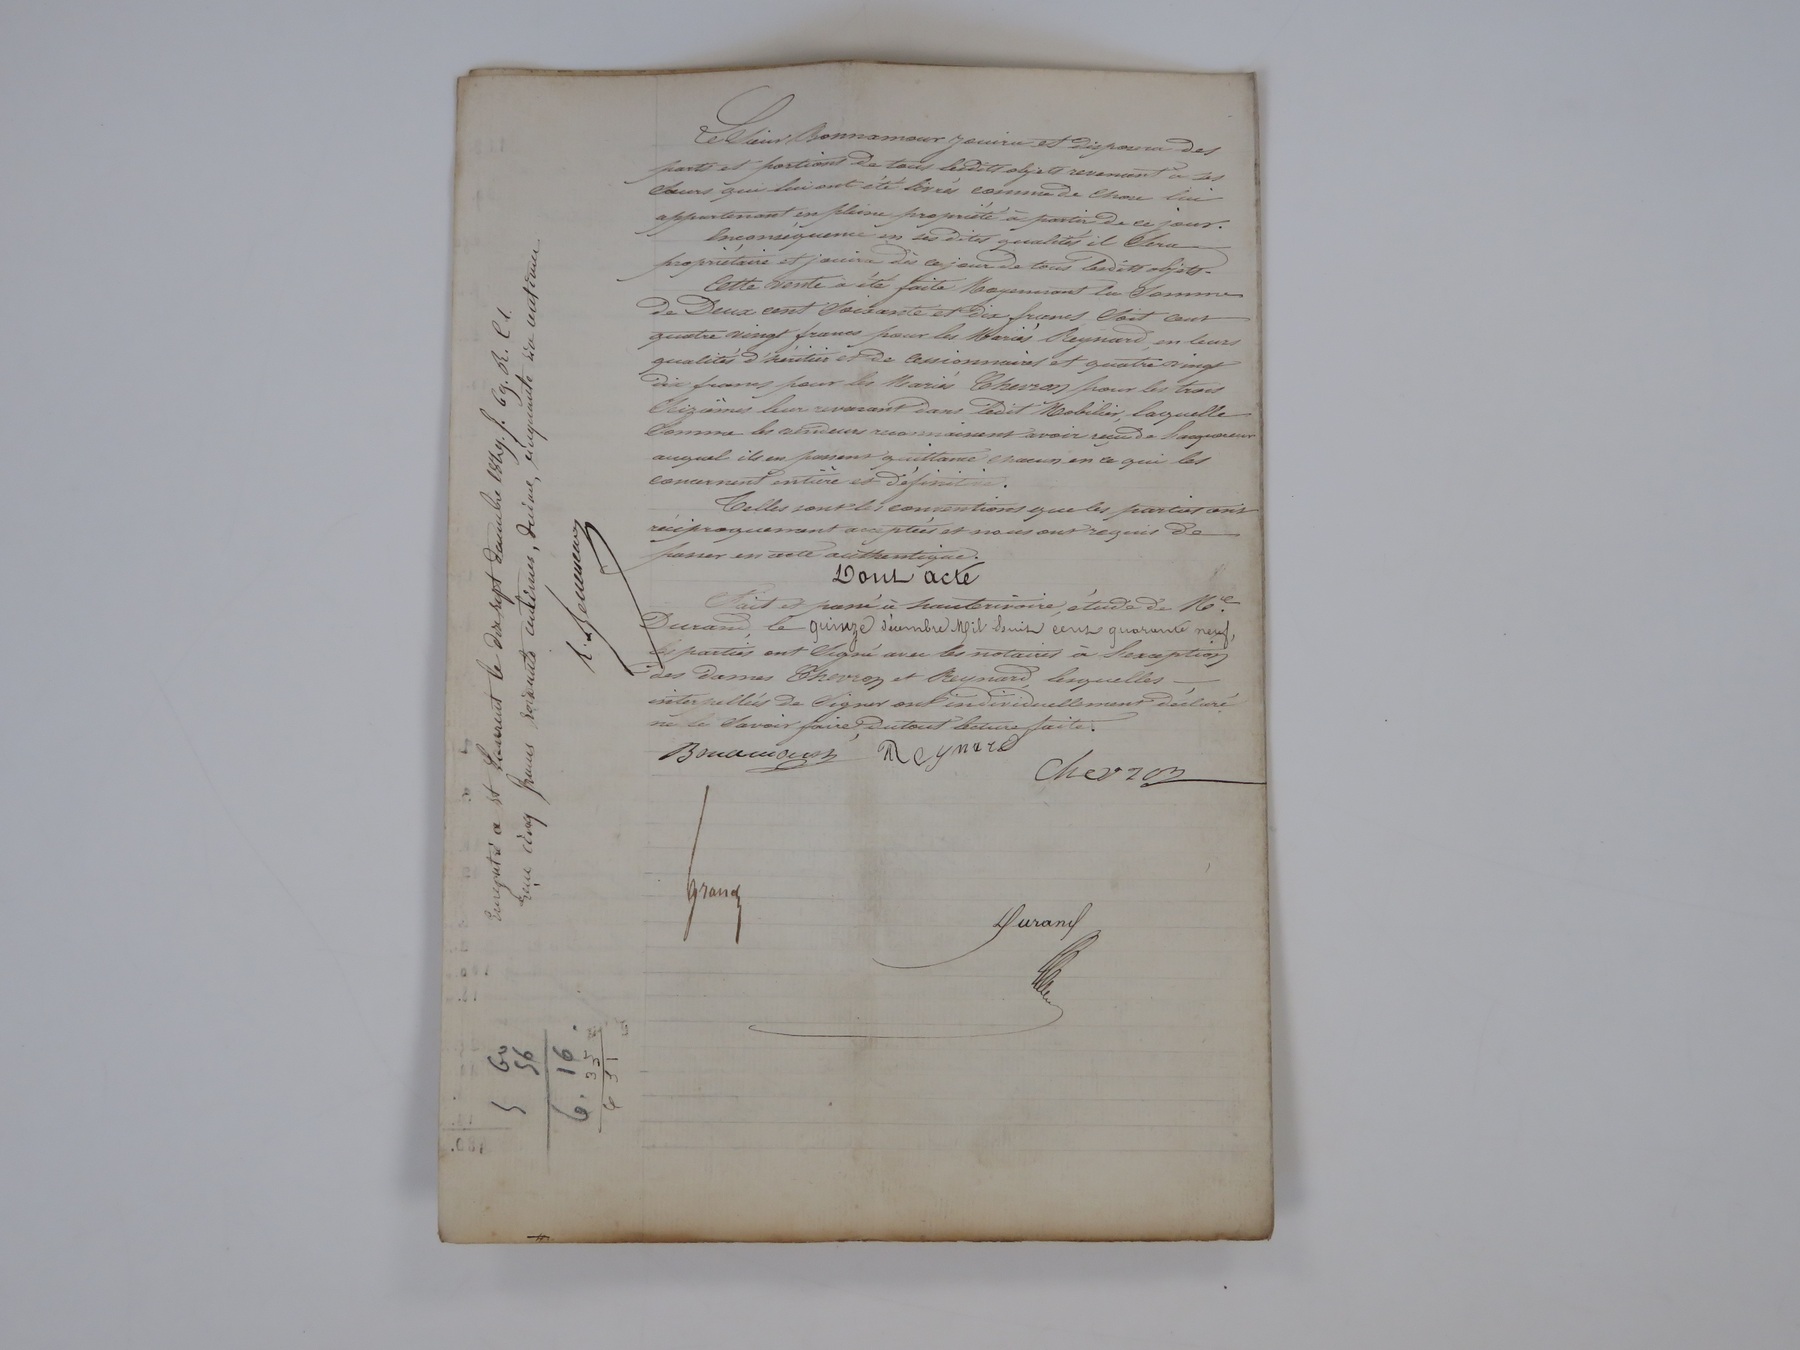 Le Sieur Bonnamour jouira et disposera des
parts et portions de tous lesdits objets revenant à ses
sœurs qui lui ont été livrés comme de chose lui
appartenant en pleine propriété à partir de ce jour.
Enconséquence en ses dites qualités il sera
propriétaire et jouira dès ce jour de tous lesdits objets.
Cette vente a été faite Moyennant la Somme
de Deux cent Soixante et dix francs Soit cent
quatre vingt francs pour les Mariés Reynard, en leurs
qualités d'héritier et de Cessionnaires et quatre vingt
dix francs pour les Mariés Chevron pour les trois
Seizièmes leur revenant dans ledit Mobilier, laquelle
Somme les vendeurs reconnaissent avoir reçu de l'acquéreur
auquel ils en passent quittance chacun en ce qui les
concernent entière et définitive.
Telles sont les conventions que les parties ont
réciproquement acceptées et nous ont requis de
passer en acte authentique.
Dont acte
Fait et passé à hauterivoire, étude de Me
Durand, le quinze décembre Mil huit cent quarante neuf,
les parties ont Signé avec les notaires à l'exception
des dames Chevron et Reynard, lesquelles
interpellés de Signer ont individuellement déclaré
ne le Savoir faire, dutout lecture faite.
Bonamour Reynard
Chevron
grand
Durand
Enregistré à St Laurent le dix sept décembre 1849, f. 69. R. C. 1.
Reçu cinq francs soixante centimes, décime, cinquante six centimes
5 60
56
6. 16.